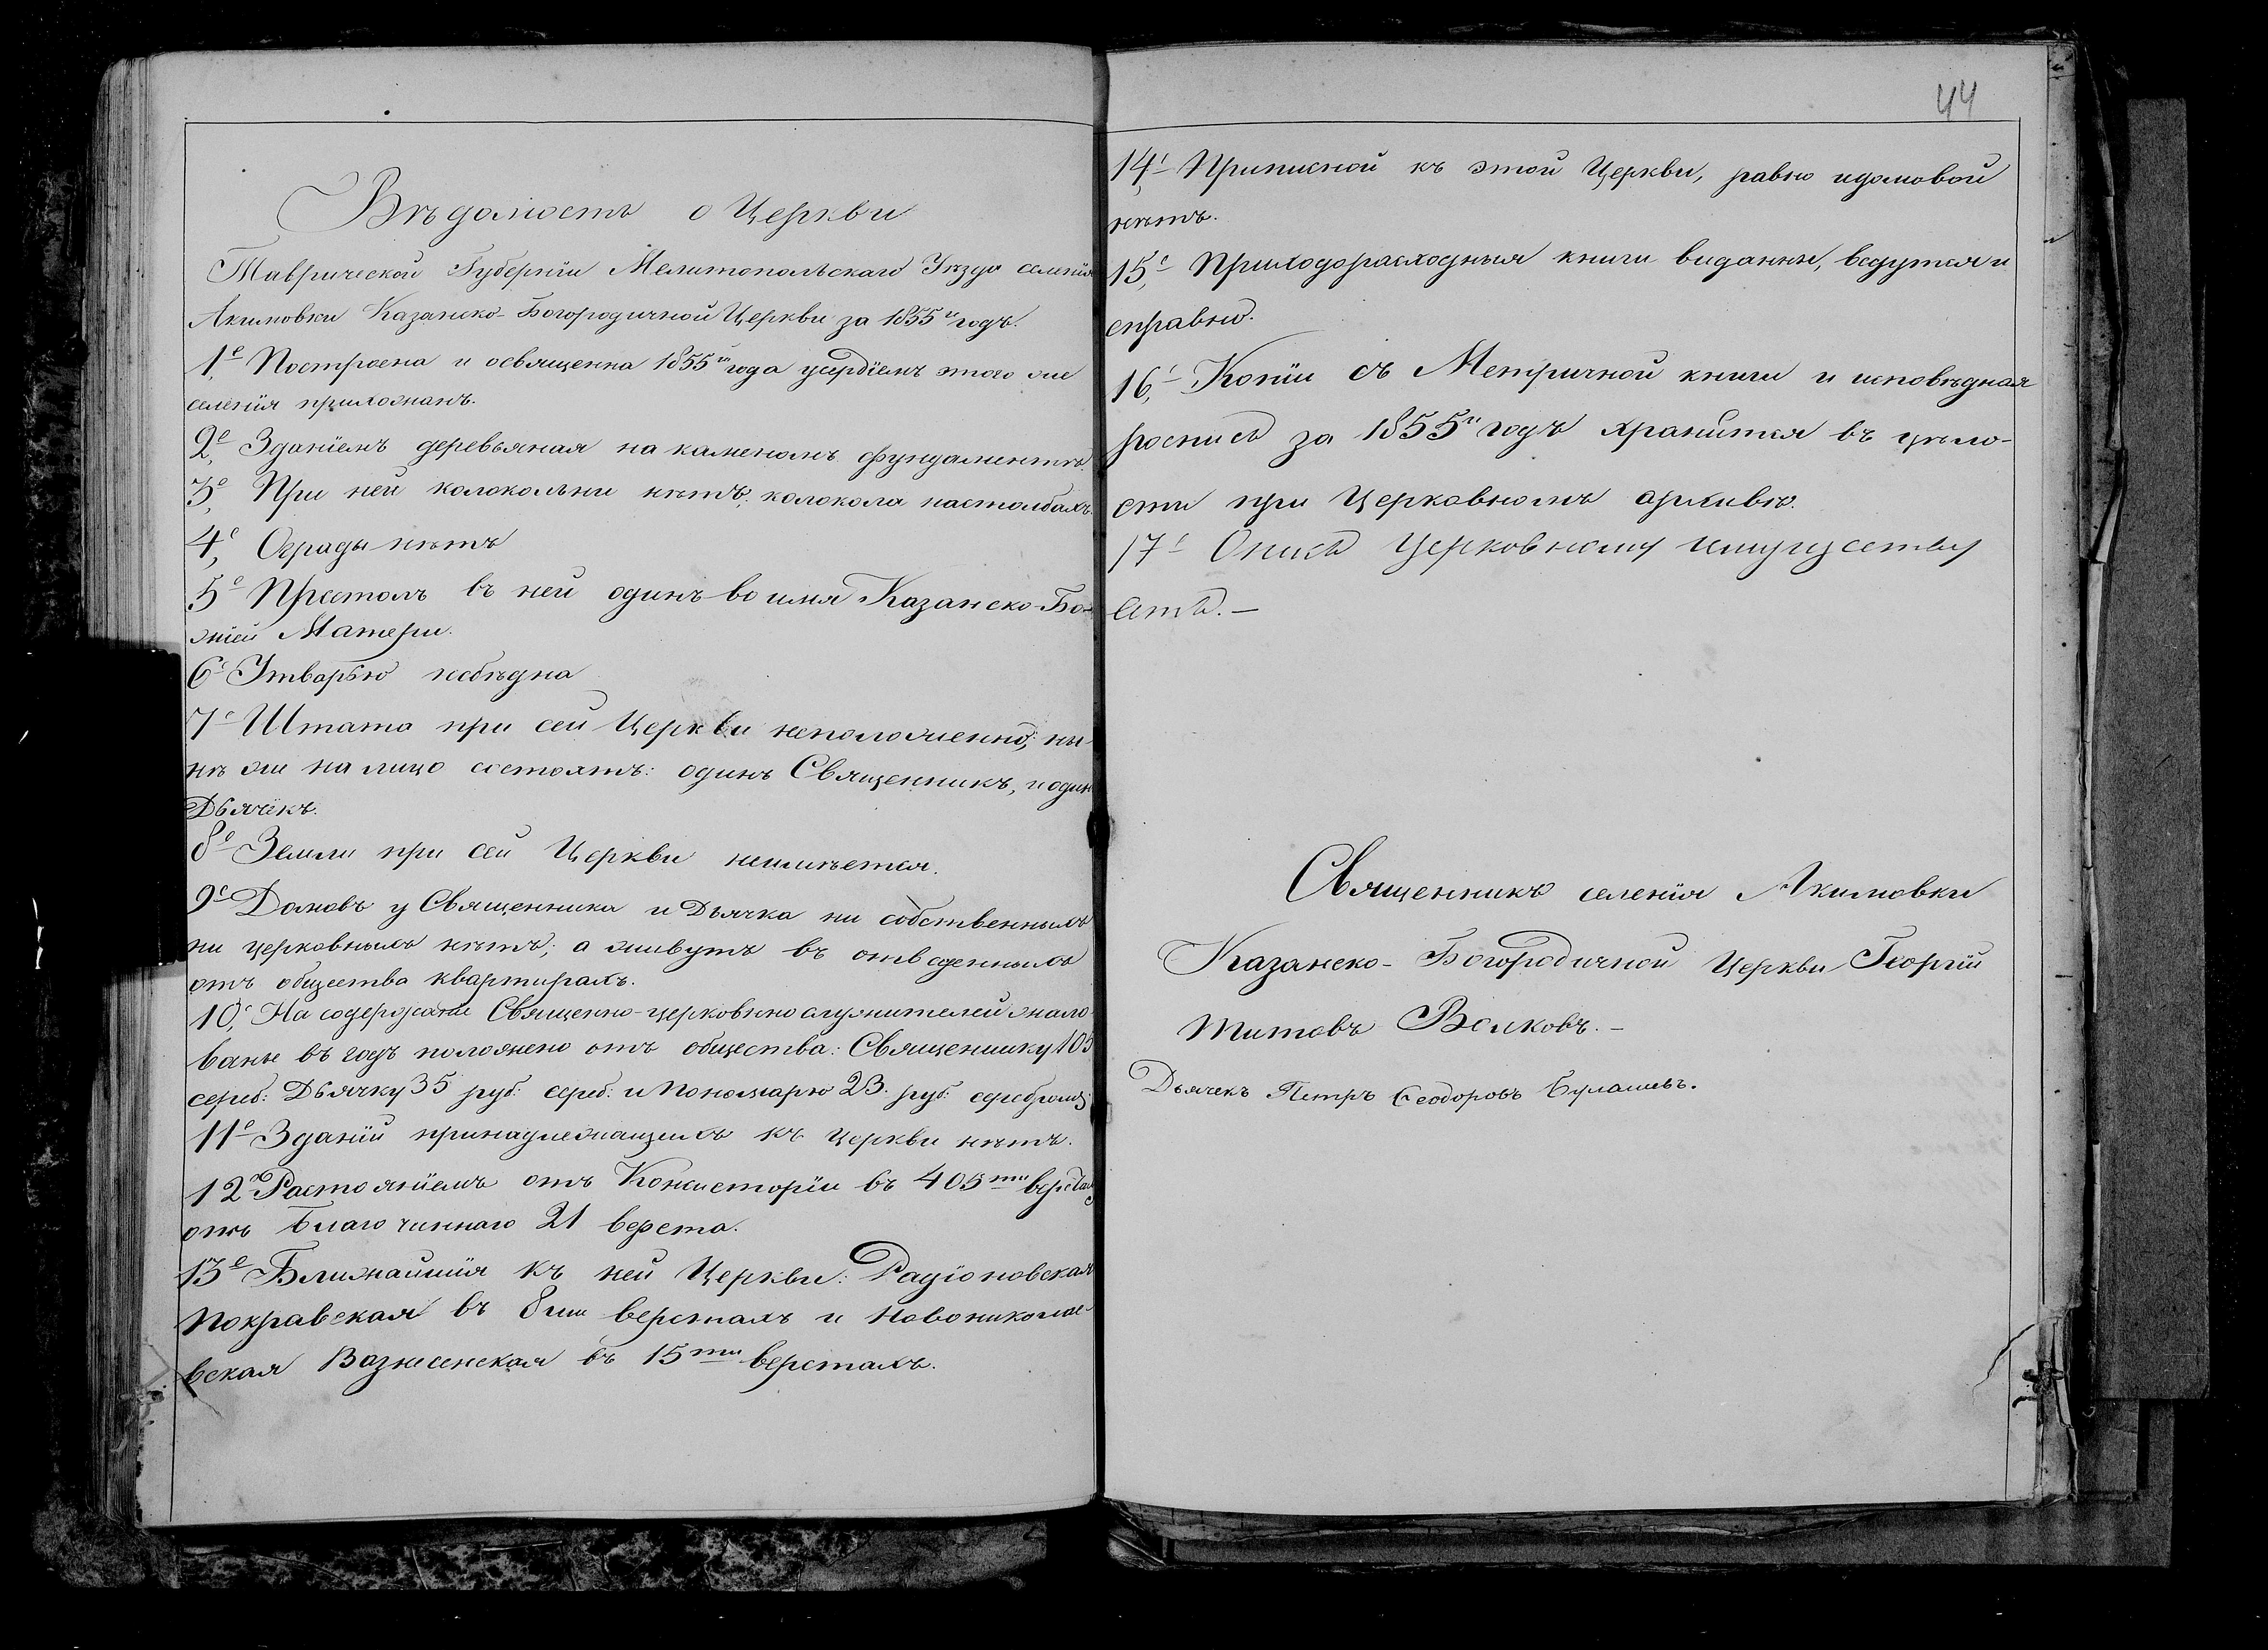 Вѣдомость о Церкви
Таврической Губерніи Мелитопольскаго Уѣзда селенія
Акимовки Казанско-Богородичной Церкви за 1855й годъ.
1е, Построена и освященна 1855го года усердіемъ этого же
селенія прихожанъ.
2е, Зданіемъ деревьяная на каменомъ фундаментѣ.
3е, При ней колокольни нѣтъ; колокола настолбахъ.
4е, Ограды нѣтъ
5е Престолъ въ ней одинъ во имя Казанско-Бо-
жіей Матери.
6е Утварью небѣдна
7е Штата при сей Церкви неположенно; ны-
нѣ же на лицо состоятъ: одинъ Священникъ, и один
Дьячекъ.
8е Земли при сей Церкви неимѣется.
9е Домовъ у Священника и Дьячка ни собственныхъ
ни церковныхъ нѣтъ; а живутъ въ отведенныхъ
отъ общества квартирахъ.
10е, На содержаніе Священно-церковнослужителей жало-
ванье въ годъ положено отъ общества: Священнику 105
сереб: Дьячку 35 руб: сереб: и Пономарю 23. руб: серебромъ;
11е Зданій принадлежащихъ къ Церкви нѣтъ.
12е Растояніемъ отъ Консисторіи въ 405ти верстах
отъ Благочиннаго 21 верста.
13е Ближайшія къ ней Церкви: Радіоновская
Покравская въ 8ми верстахъ и Новоникола-
вская Вазнесенская въ 15ти верстахъ.
44
14е, Приписной къ этой Церкви, равно идомовой
нѣтъ.
15е, Приходорасходныя книги виданны, ведутся и
справно.
16е, Копіи съ Метричной книги и исповѣдная
роспись за 1855й годъ хранится въ цѣло-
сти при Церковномъ архивѣ.
17е Опись Церковному имуществу
есть.—
Священникъ селенія Акимовки
Казанско-Богородичной Церкви Георгій
Титовъ Волковъ.—
Дьячекъ Петръ Ѳеодоровъ Булашевъ.